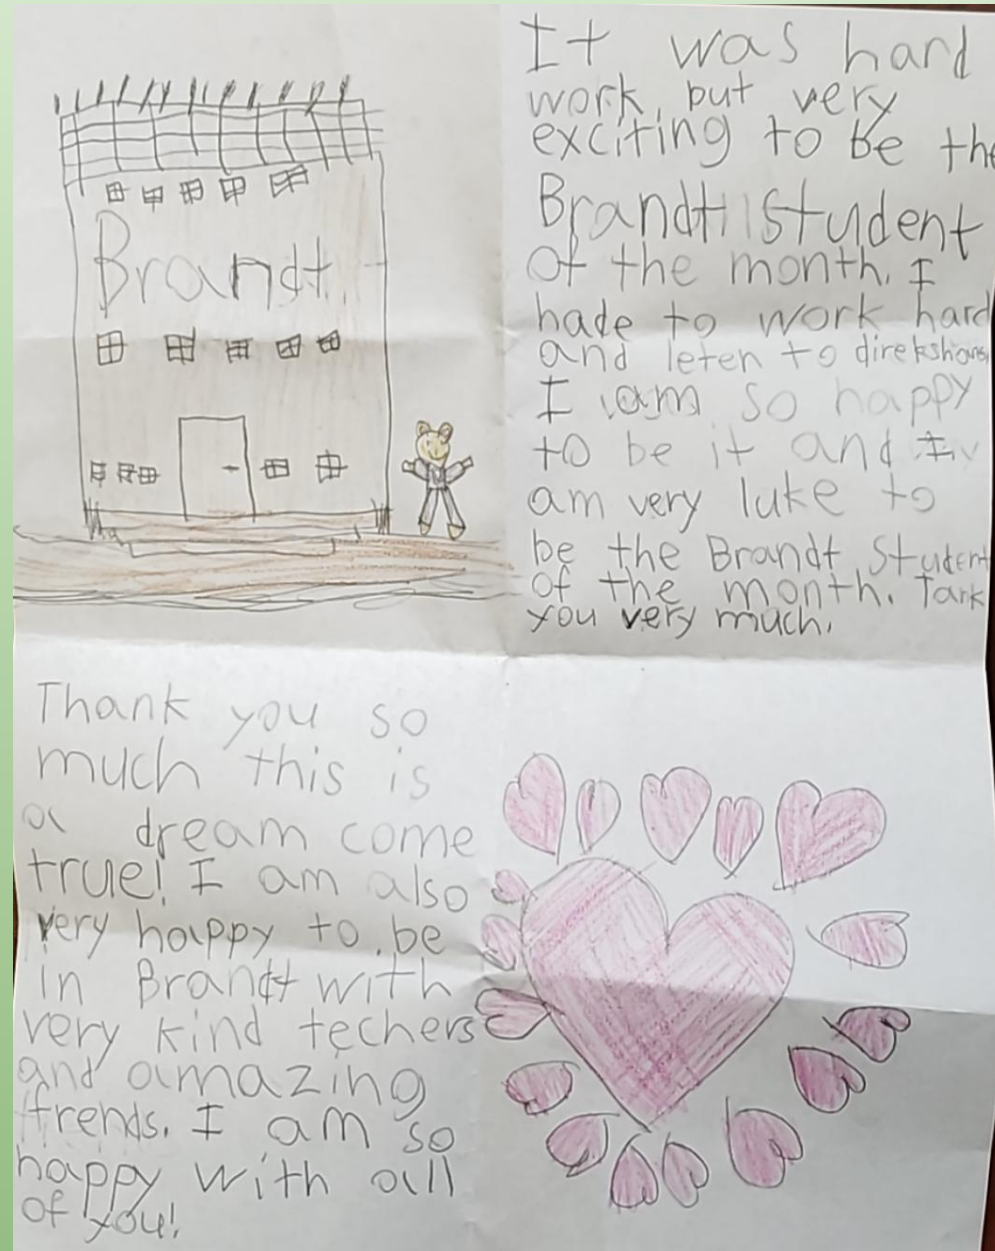 Brandt
It was hard
work, but very
exciting to be the
Brandt student
of the month. I
hade to work hard
and leten to direkshons
I am so happy
to be it and I
am very luke to
be the Brandt Student
of the month. Tank
you very much.
Thank you so
much this is
a dream come
true! I am also
very happy to be
in Brandt with
very kind techers
and amazing
frends. I am so
happy with all
of you!